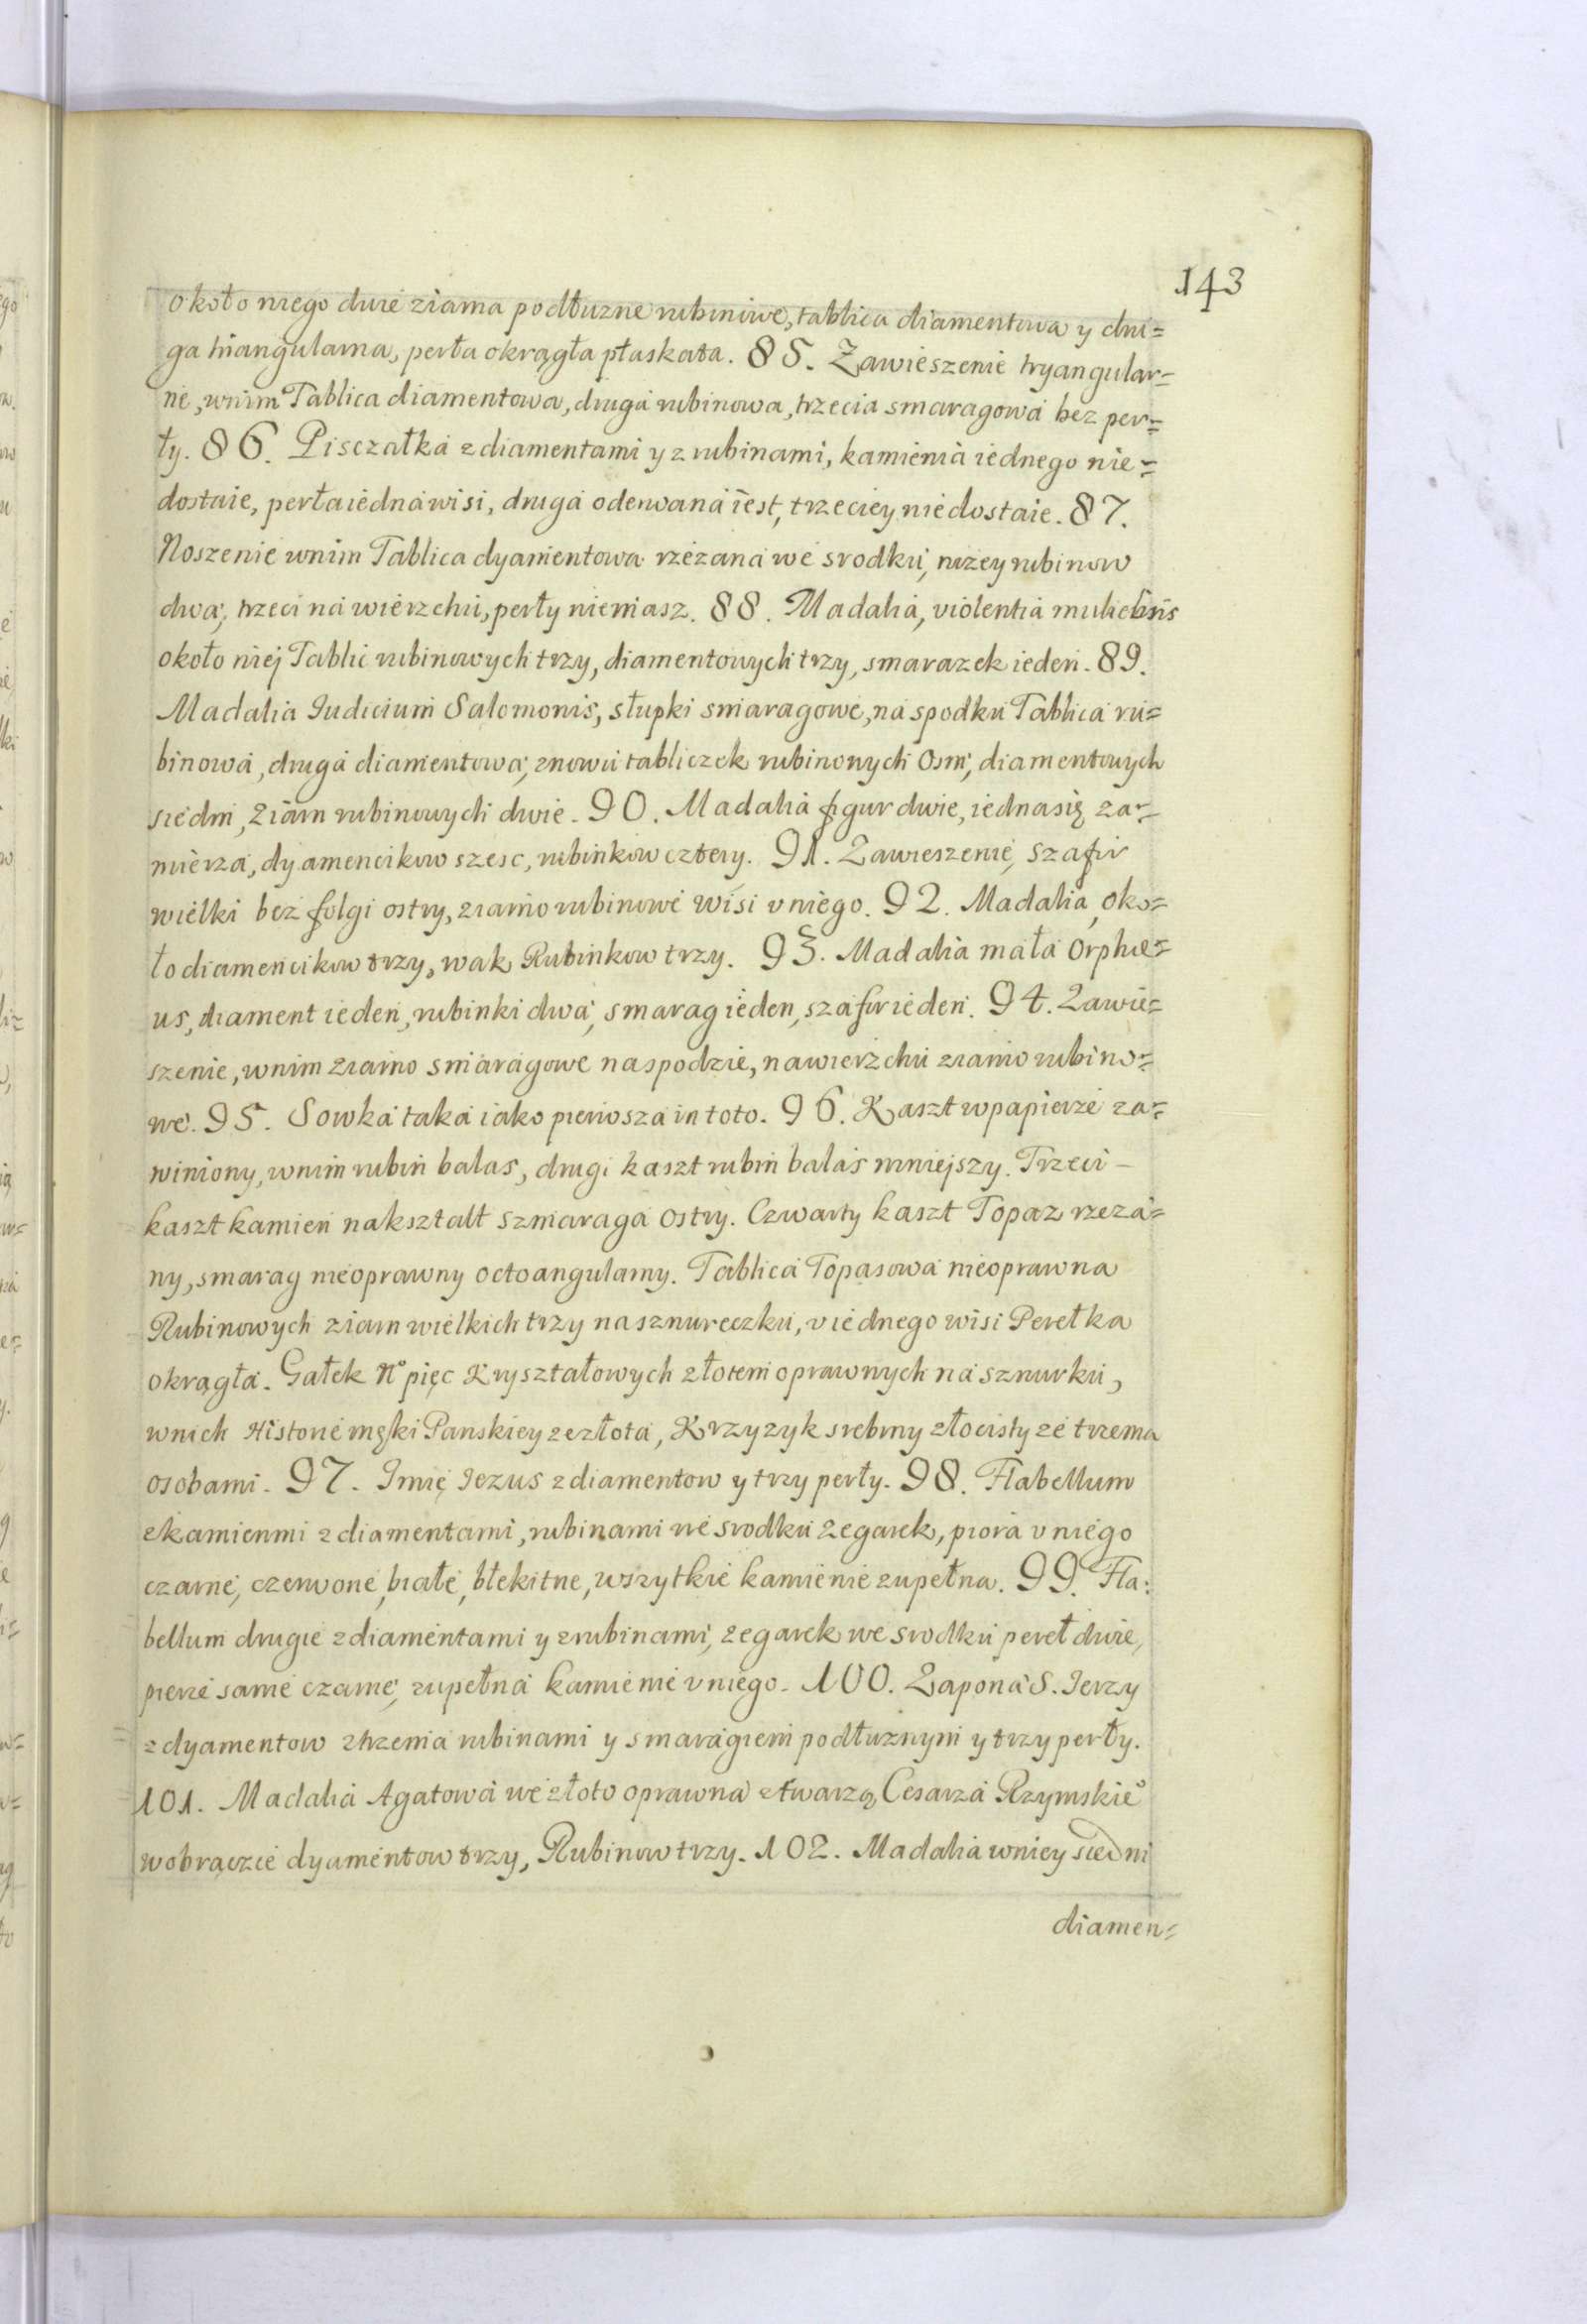 143
około niego dwie ziarna podłuzne rubinowe, tablica diamentowa y dru=
ga triangularna, perła okrągła płaskata. 85. Zawieszenie tryangular=
ne, wnim Tablica diamentowa, druga rubinowa, trzecia smaragowa bez per=
ły. 86. Pisczałka z diamentami y z rubinami, kamienia iednego nie=
dostaie, perła iedna wisi, druga oderwana iest, trzeciey niedostaie. 87.
Noszenie wnim Tablica dyamentowa rzezana we srodku, nizey rubinow
dwa, trzeci na wierzchu, perły niemasz. 88. Madalia, violentia muliebris
około niej Tablic rubinowych trzy, diamentowych trzy, smarazek ieden. 89.
Madalia Iudicium Salomonis, słupki smaragowe, na spodku Tablica ru=
binowa, druga diamentowa, znowu tabliczek rubinowych osm, diamentowych
siedm, ziarn rubinowych dwie. 90. Madalia figur dwie, iedna się za=
mierza, dyamencikow szesc, rubinkow cztery. 91. Zawieszenie, szafir
wielki bez folgi ostry, ziarno rubinowe wisi v niego. 92. Madalia, oko=
ło diamencikow trzy, wak Rubinkow trzy. 93. Madalia mała Orphe=
us, diament ieden, rubinki dwa, smarag ieden, szafir ieden. 94. Zawie=
szenie, wnim ziarno smaragowe naspodzie, nawierzchu ziarno rubino=
we. 95. Sowka taka iako pierwsza in toto. 96. Kaszt wpapierze za=
winiony, wnim rubin balas, drugi kaszt rubin balas mniejszy. Trzeci -
kaszt kamien nakształt szmaraga ostry. Czwarty kaszt Topaz rzeza=
ny, smarag nieoprawny octoangularny. Tablica Topasowa nieoprawna
Rubinowych ziarn wielkich trzy na sznureczku, v iednego wisi Perełka
okrągła. Gałek No pięc Kryształowych złotem oprawnych na sznurku,
wnich Historie męki Panskiey ze złota, Krzyzyk srebrny złocisty ze trzema
osobami. 97. Imię Iezus z diamentow y trzy perły. 98. Flabellum
z kamienmi z diamentami, rubinami we srodku zegarek, piora v niego
czarne, czerwone, białe, błekitne, wszytkie kamienie zupełna. 99. Fla:
bellum drugie z diamentami y z rubinami, zegarek we srodku pereł dwie,
pierze same czarne, zupełna kamienie v niego. 100. Zapona S. Ierzy
z dyamentow z trzema rubinami y smaragiem podłuznym y trzy perły.
101. Madalia Agatowa we złoto oprawna z twarzą Cesarza Rzymskieo
wobrączce dyamentow trzy, Rubinow trzy. 102. Madalia wniey siedm
diamen=